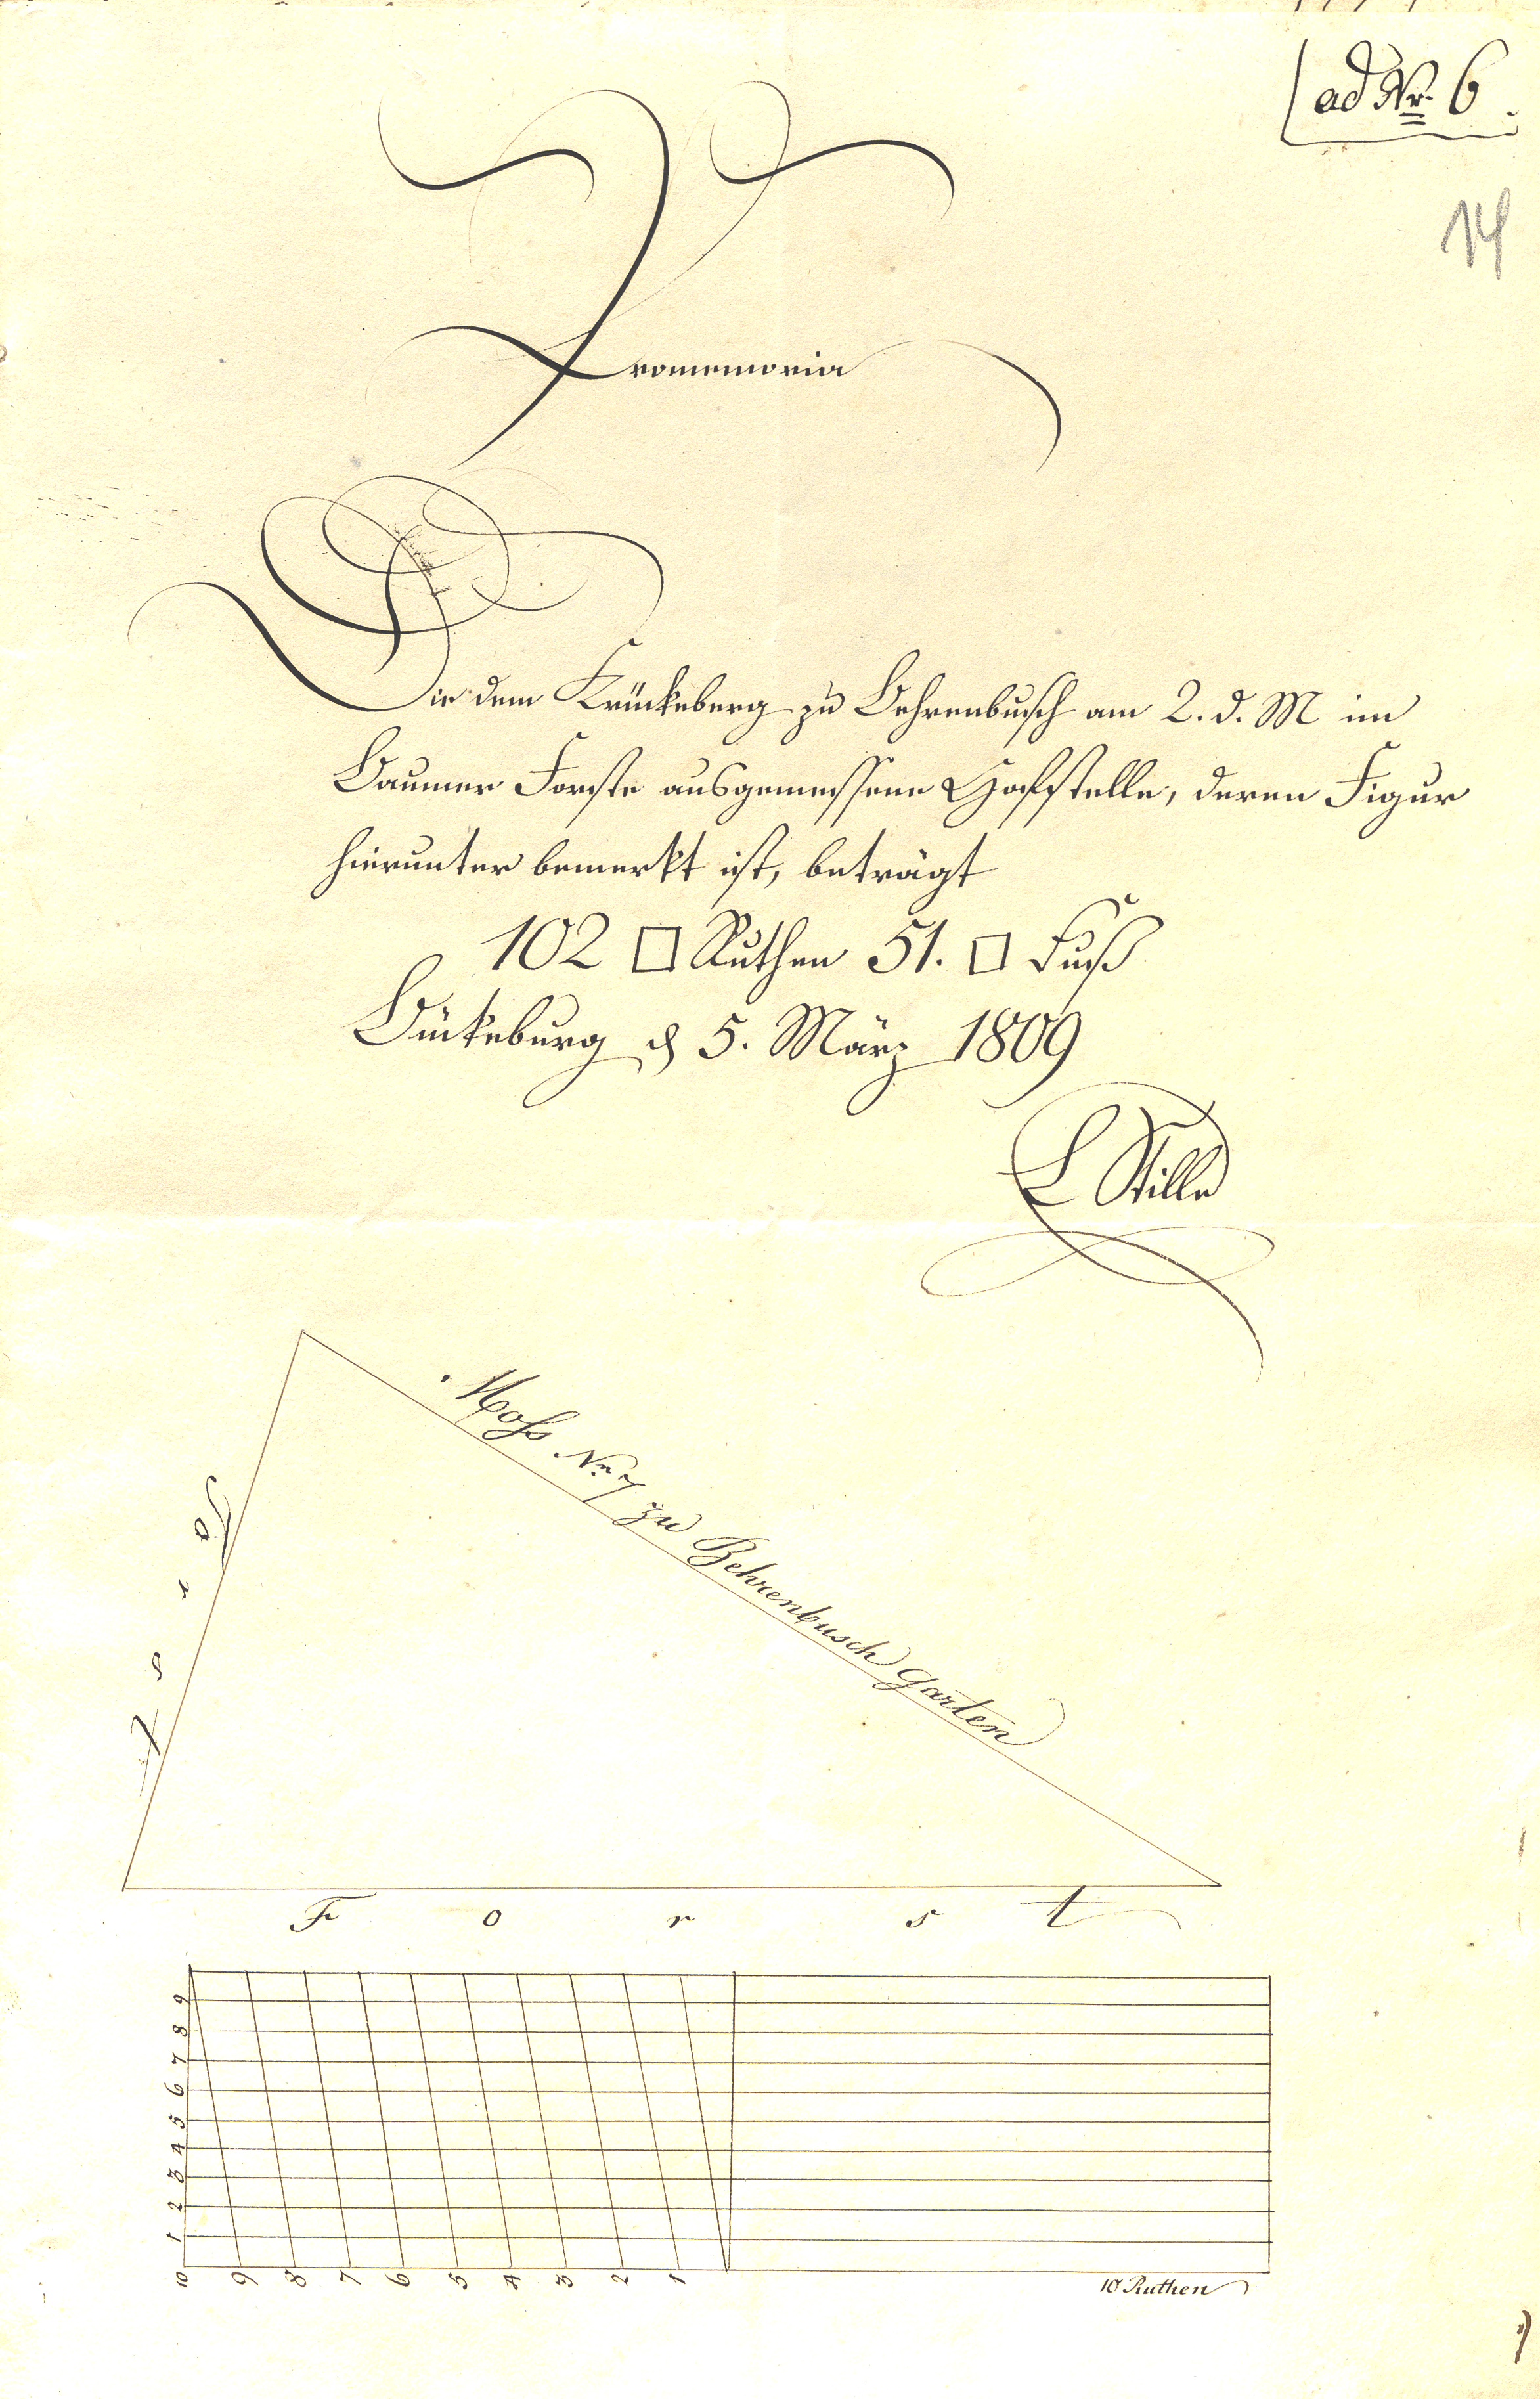 ad Nr. 6.
14
Promemoria
Die dem Krückeberg zu Behrenbusch am 2. d. M im
Baumer Forste ausgemessene Hofstelle, deren Figur
hierunter bemerkt ist, beträgt
102 □ Ruthen 51. □ Fuß
Bückeburg d 5. März 1809
L Stille
Nr. 7 zu Behrenbusch Garten
F o r s t
9
8
7
6
5
4
3
2
1
10 9 8 7 6 5 4 3 2 1
10 Ruthen